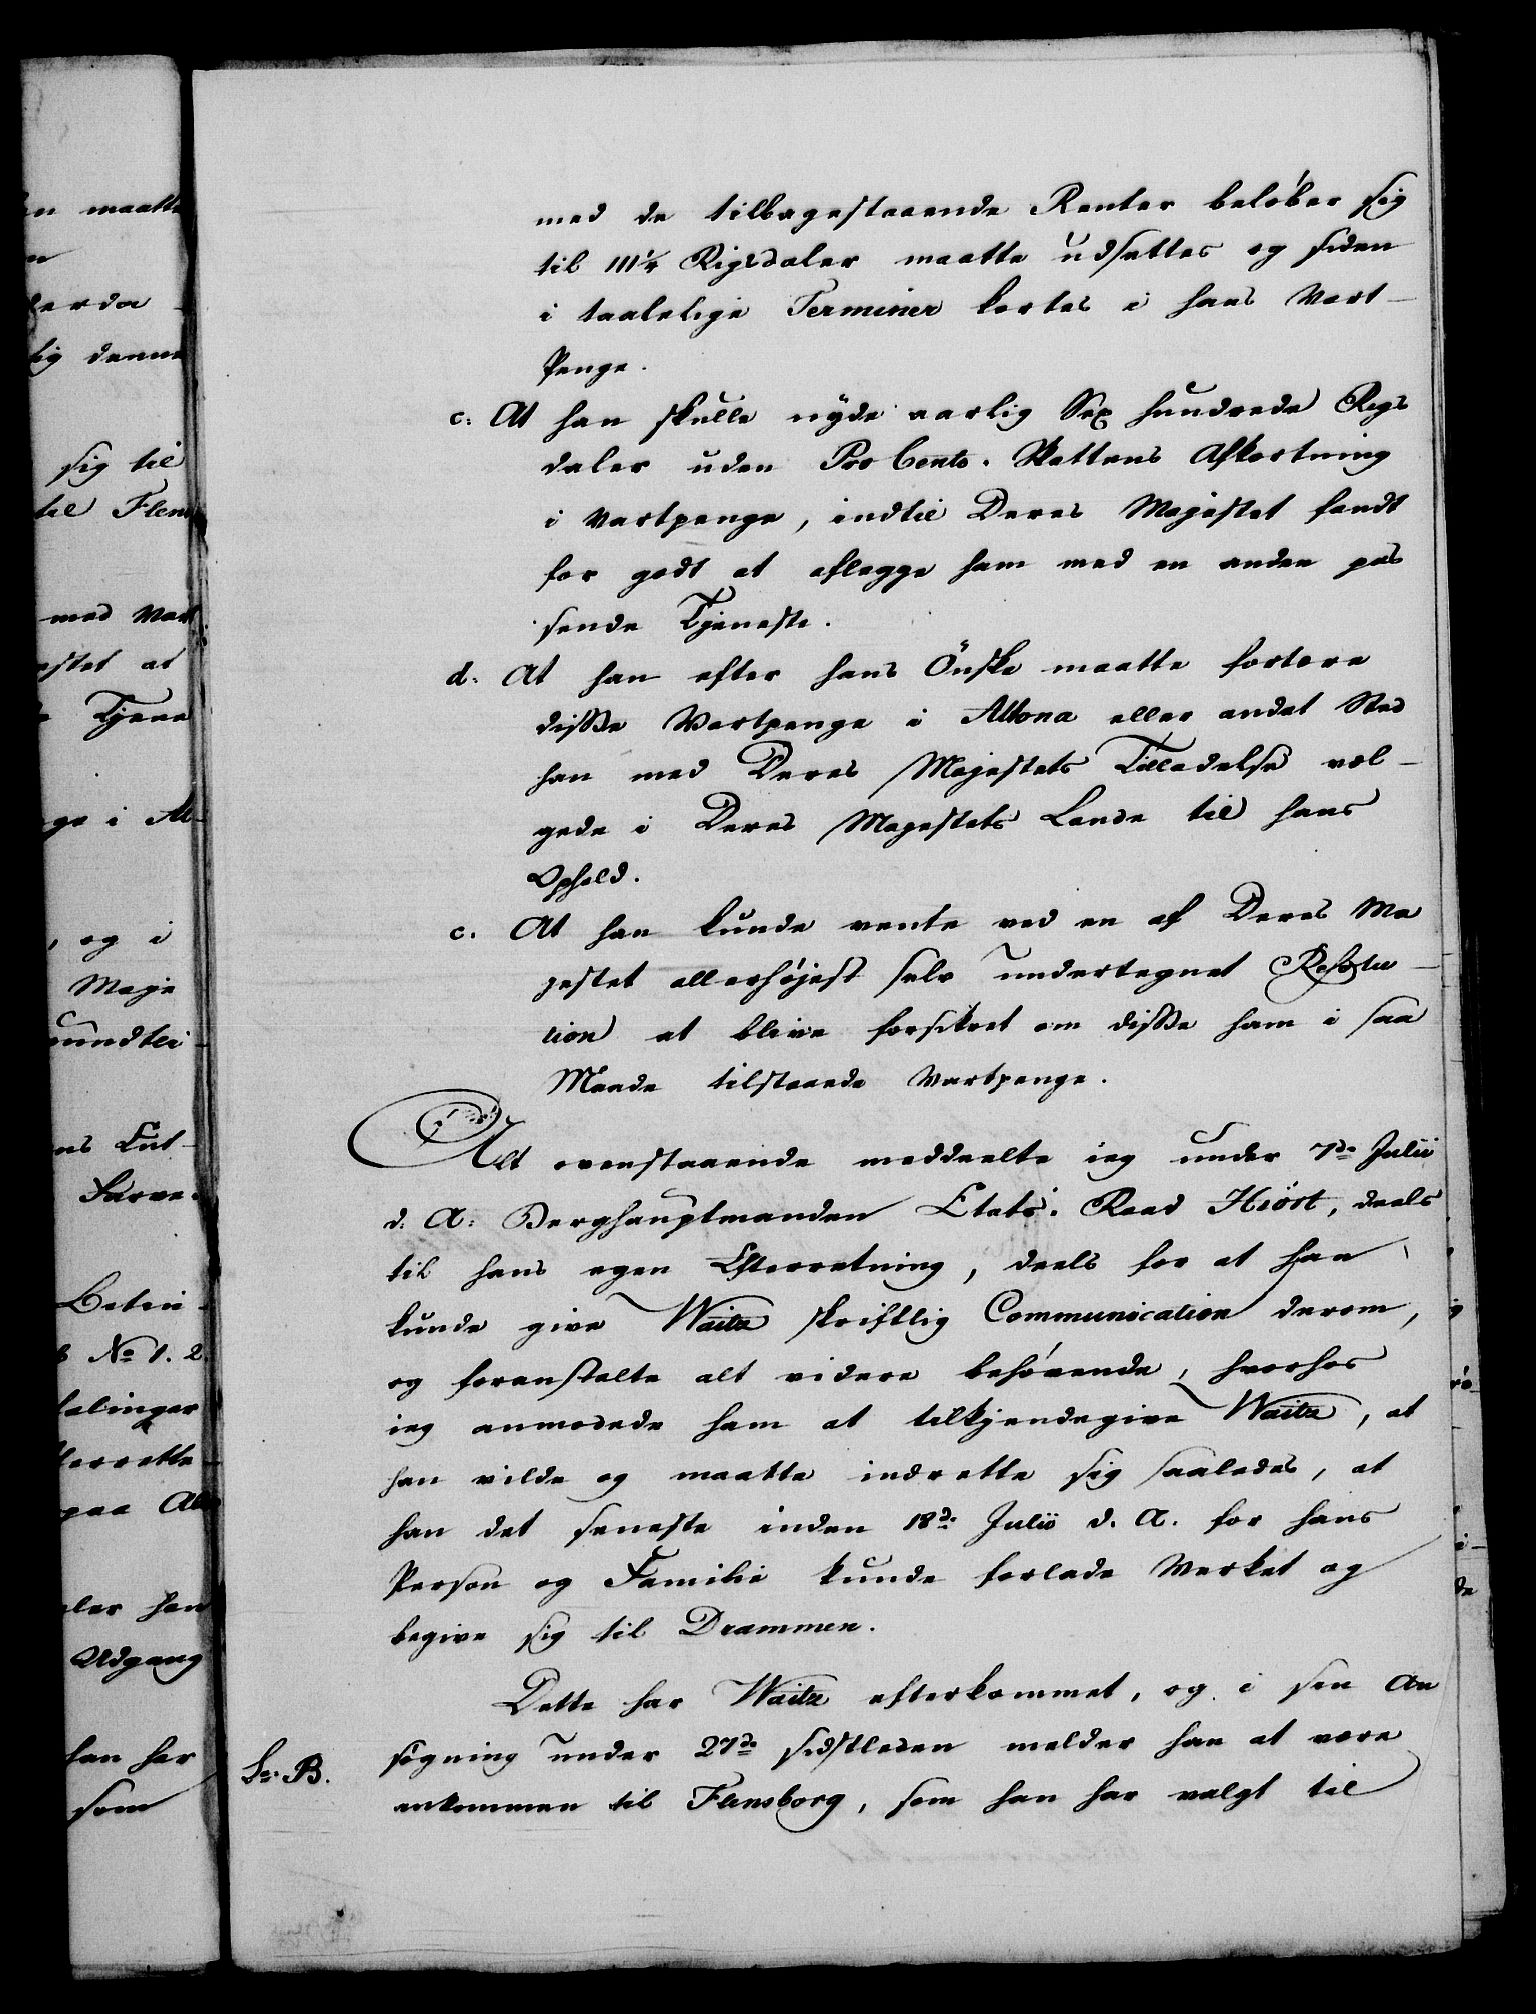 med de tilbagestaaende Renter beløber sig
til 111¼ Rigsdaler maatte udsættes og siden
i taalelige Terminer kortes i hans Vart-
Penge.
c: At han skulle nyde aarlig Sex hundrede Rigs
daler uden Pro Cento Skattens Afkortning
i Vartpenge, indtil Deres Majestet fandt
for godt at aflægge ham med en anden pas
sende Tjeneste.
d: At han efter hans Önske maatte fortære
disse Vartpenge i Altona eller andet Sted
han med Deres Majestets Tilladelse væl-
gede i Deres Majestets Lande til hans
Ophold.
e. At han kunde vente ved en af Deres Ma
jestet allerhøjest selv undertegnet Resolu-
tion at blive forsikret om disse ham i saa
Maade tilstaaede Vartpenge.
Alt ovenstaaende meddeelte ieg under 7de Julii
d: A: Berghauptmanden Etats-Raad Hiört, deels
til hans egen Efterretning, deels for at han
kunde give Waitz skriftlig Communication derom,
og foranstalte alt videre behøvende, hvorhos
ieg anmodede ham at tilkjendegive Waitz, at
han vilde og maatte indrette sig saaledes, at
han det seneste inden 18de Julii d. A. for hans
Person og Familie kunde forlade Værket og
begive sig til Drammen.
Dette har Waitz efterkommet, og i sin An
Lr. B. søgning under 27de sidstleden melder han at være
ankommen til Flensborg, som han har valgt til
maatte
denne
sig til
til Flens
med Vart
Tjene
ge i Al-
, og i
Maje
No 1. 2.
paa
Udgang
han har
som